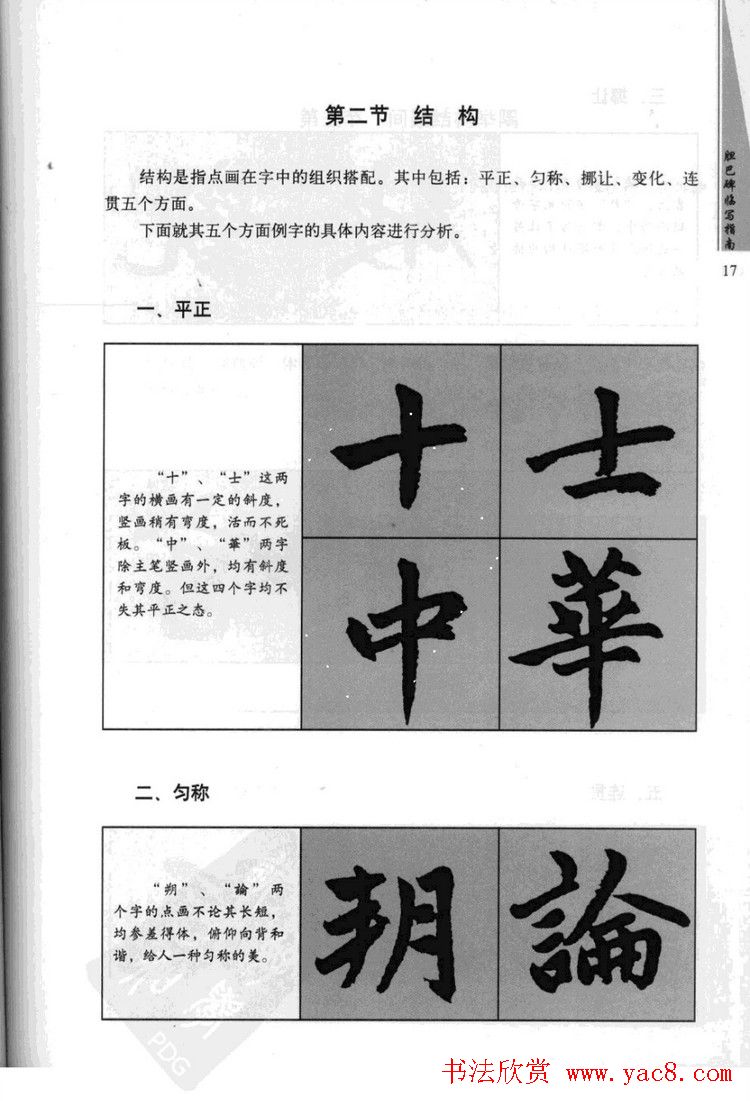 第二节 结 构
结构是指点画在字中的组织搭配。其中包括：平正、匀称、挪让、变化、连
贯五个方面。
下面就其五个方面例字的具体内容进行分析。
一、平正
“十”、“士”这两
字的横画有一定的斜度，
竖画稍有弯度，活而不死
板。“中”、“華”两字
除主笔竖画外，均有斜度
和弯度。但这四个字均不
失其平正之态。
十 士
中 華
二、匀称
“朔”、“論”两
个字的点画不论其长短，
均参差得体，俯仰向背和
谐，给人一种匀称的美。
朔 論
胆巴碑临写指南
17
PDG
书法欣赏 www.yac8.com